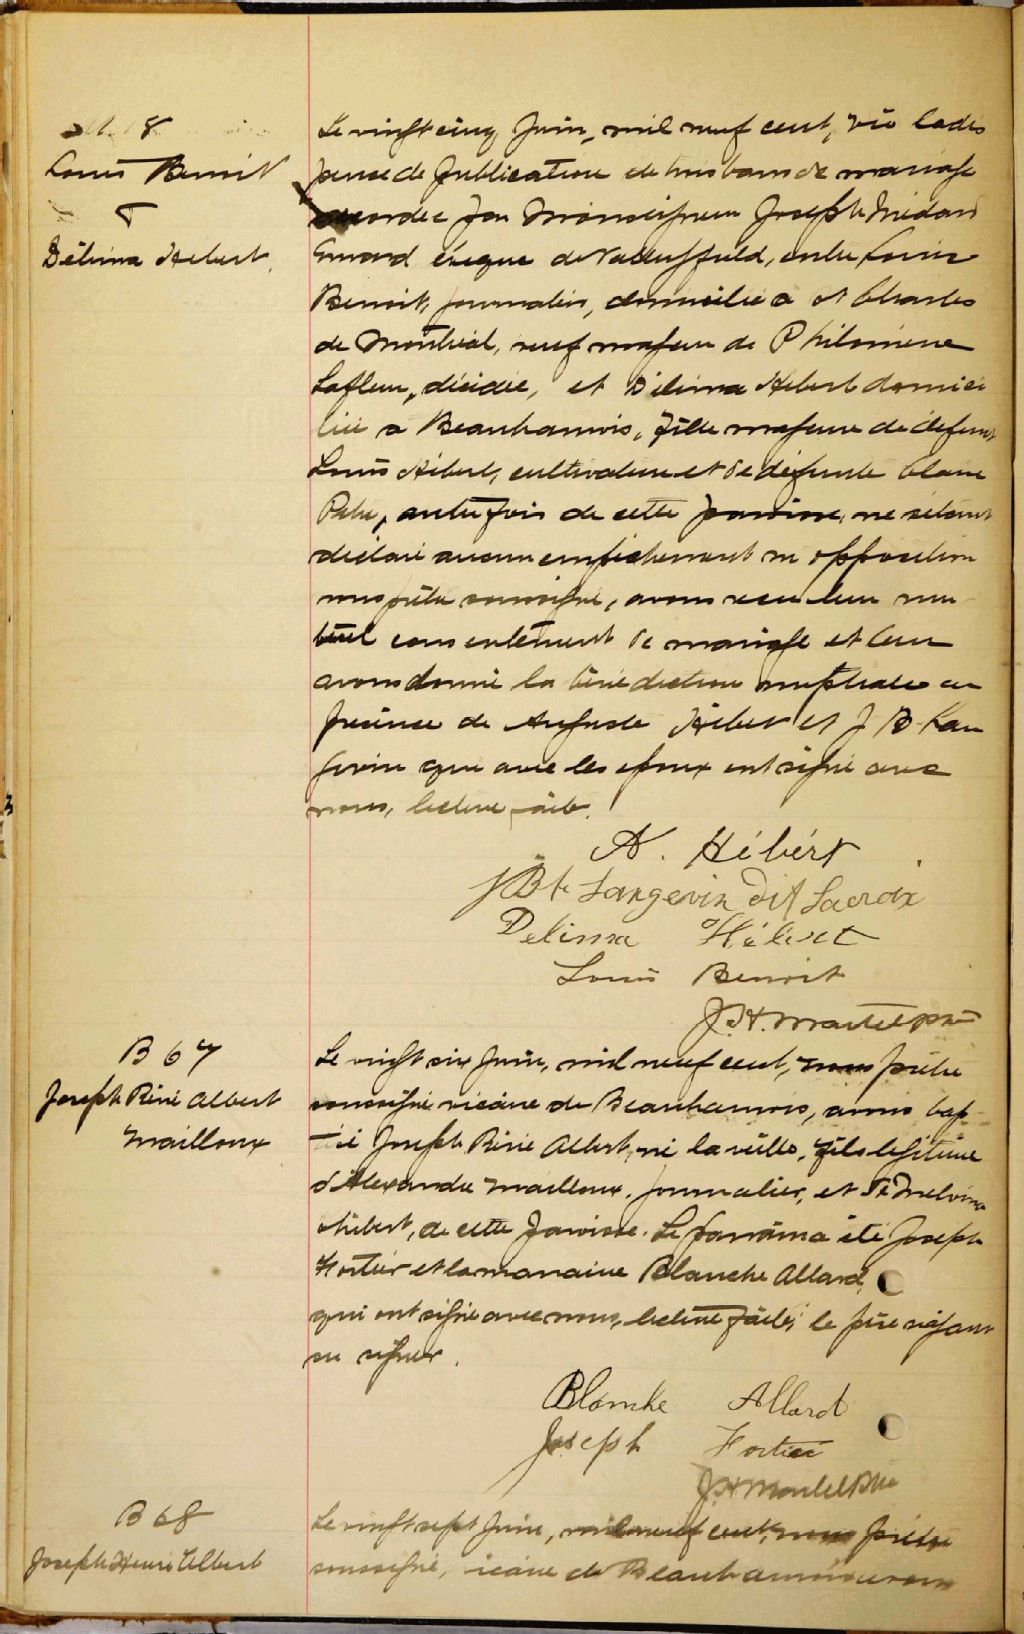 M. 18
Louis Benoit
&
Délima Hébert.
Le vingt cinq Juin, mil neuf cent, vû la dis
pense de publication de trois bans de mariage
accordée par Monseigneur Joseph Médard
Emard évêque de Valleyfield, entre Louis
Benoit, journalier, domicilié à St Charles
de Montréal, veuf majeur de Philomène
Lafleur, décédée, et Délima Hébert domici
liée à Beauharnois, fille majeure de défunt
Louis Hébert, cultivateur et de défunte
autrefois de cette paroisse, ne s'étant
déclaré aucun empêchement ni opposition
nous prêtre soussigné, avons reçu leur mu
tuel consentement de mariage et leur
avons donné la bénédiction nuptiale en
présence de Auguste Hébert et J B Lan
gevin qui avec les époux ont signé avec
nous, lecture faite.
A. Hébért
J Bte Langevin dit Lacroix
Delima Hébert
Louis Benoit
J.H. Martel ptre
B 67
Joseph Réné Albert
Mailloux
Le vingt six Juin, mil neuf cent, nous prêtre
soussigné vicaire de Beauharnois, avons bap
tisé Joseph Réné Albert, né la veille, fils légitime
d'Alexandre Mailloux, journalier, et de Melvina
Hébert, de cette paroisse. Le parrain a été Joseph
Fortier et la marraine Blanche Allard,
qui ont signé avec nous, lecture faite, le père n'ayant
su signer.
Blanche Allard
Joseph Fortier
J.H Martel Ptre
B 68
Joseph Henri Albert
Le vingt sept Juin, mil neuf cent, nous prêtre
soussigné, vicaire de Beauharnois avons